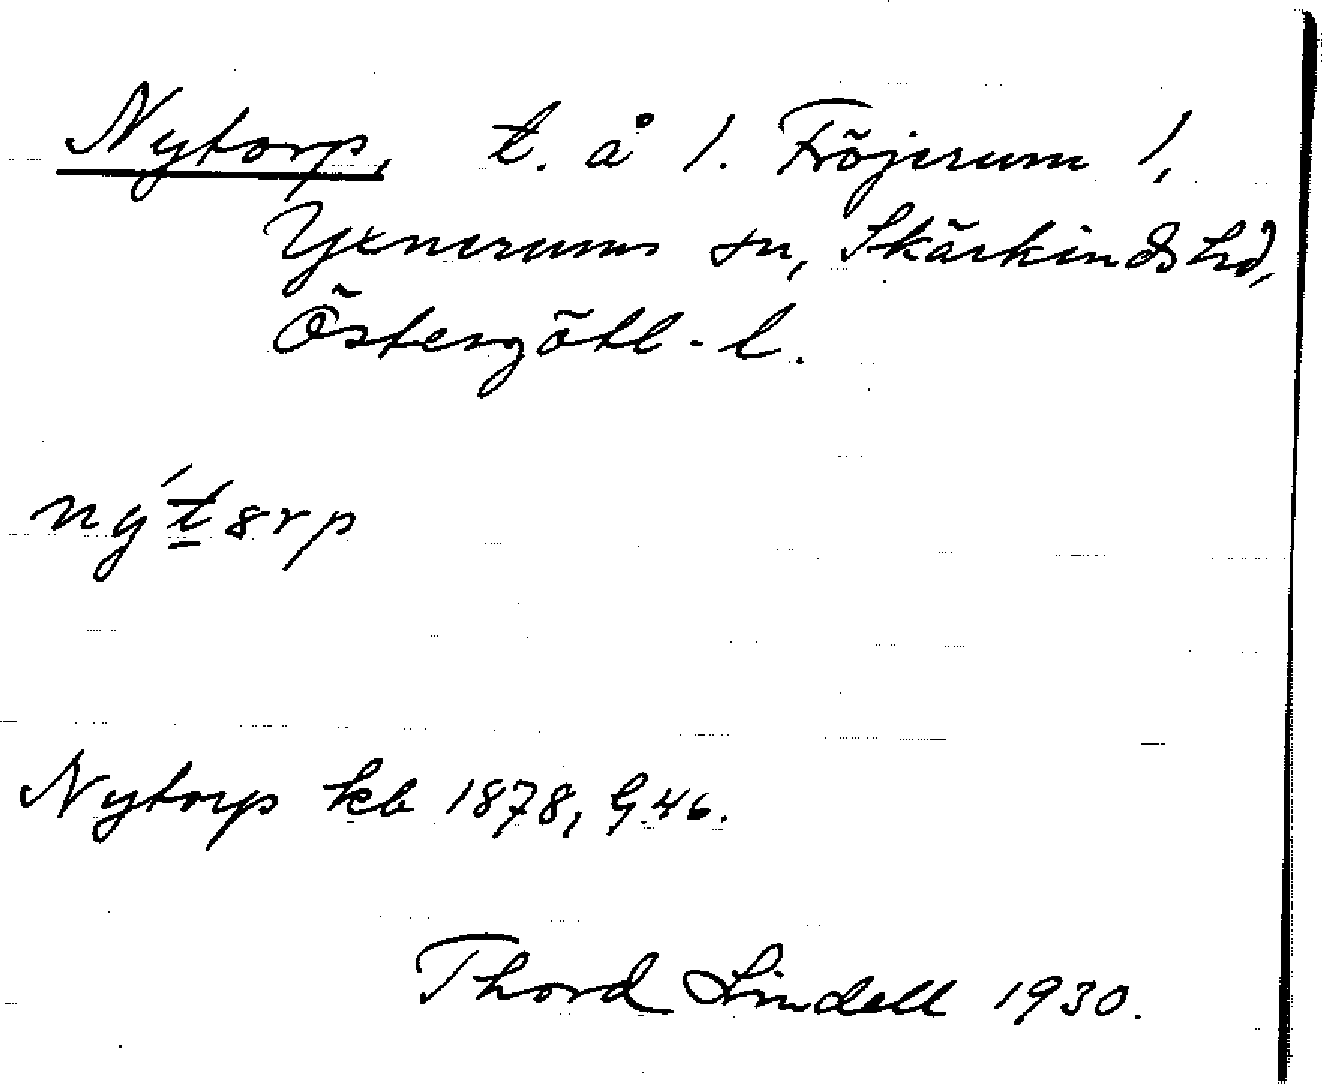 Nytorp, t. å 1. Fröjerum 1,
Yxnerums sn, Skärkinds hd,
Östergötl. l.
ny´t8rp
Nytorp kb 1878, G 46.
Thord Lindell 1930.